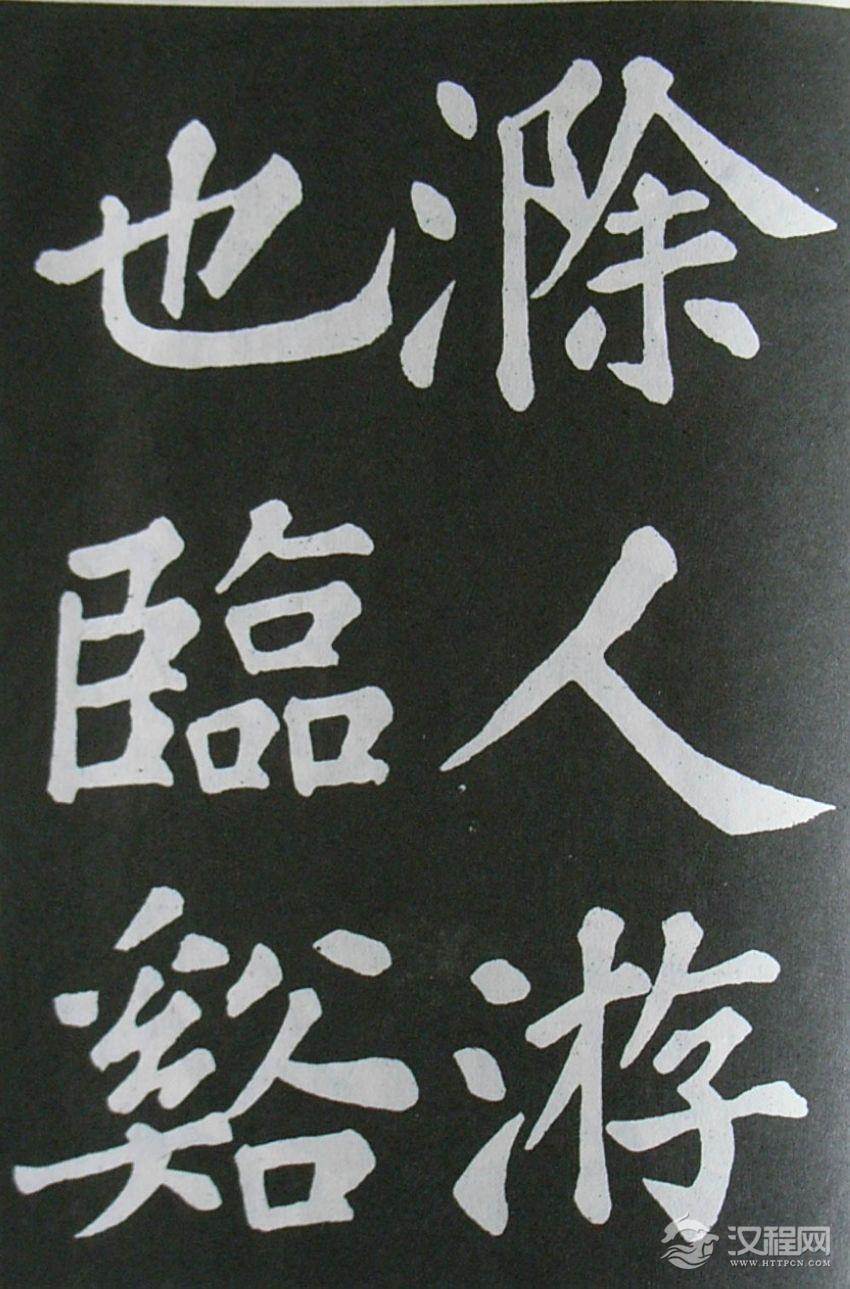 滁人游
也臨谿
汉程网
WWW.HTTPCN.COM